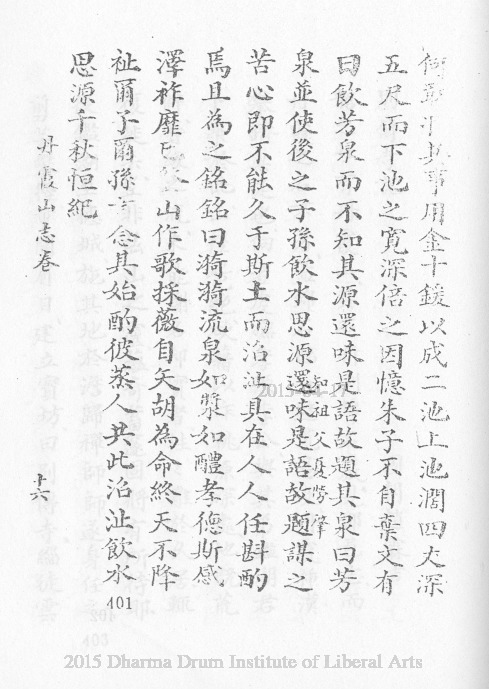 事用金十鍰以成二池上池濶四丈深
五尺而下池之寛深倍之因憶朱子不自棄文有
曰飲芳泉而不知其源還味是語故題其泉曰芳
泉並使後之子孫飲水思源還味是語故題謀之
知祖父憂勞肇
苦心即不能久于斯土而治沚具在人人任斟酌
焉且為之銘銘曰漪漪流泉如漿如醴孝德斯感
澤祚靡山作歌採薇自矢胡為命終天不降
祉爾子爾孫言念其始酌彼蒸人共此治沚飲水
思源千秋恒紀
丹霞山志卷
十六
401
2015
2015 Dharma Drum Institute of Liberal Arts